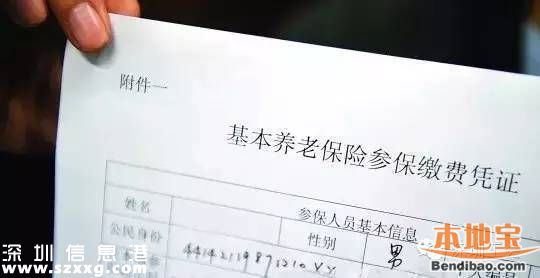 附件一
基本养老保险参保缴费凭证
参保人员基本信息
姓名
性别
男
公民身份
深圳信息港
www.szxxg.com
本地宝
Bendibao.com